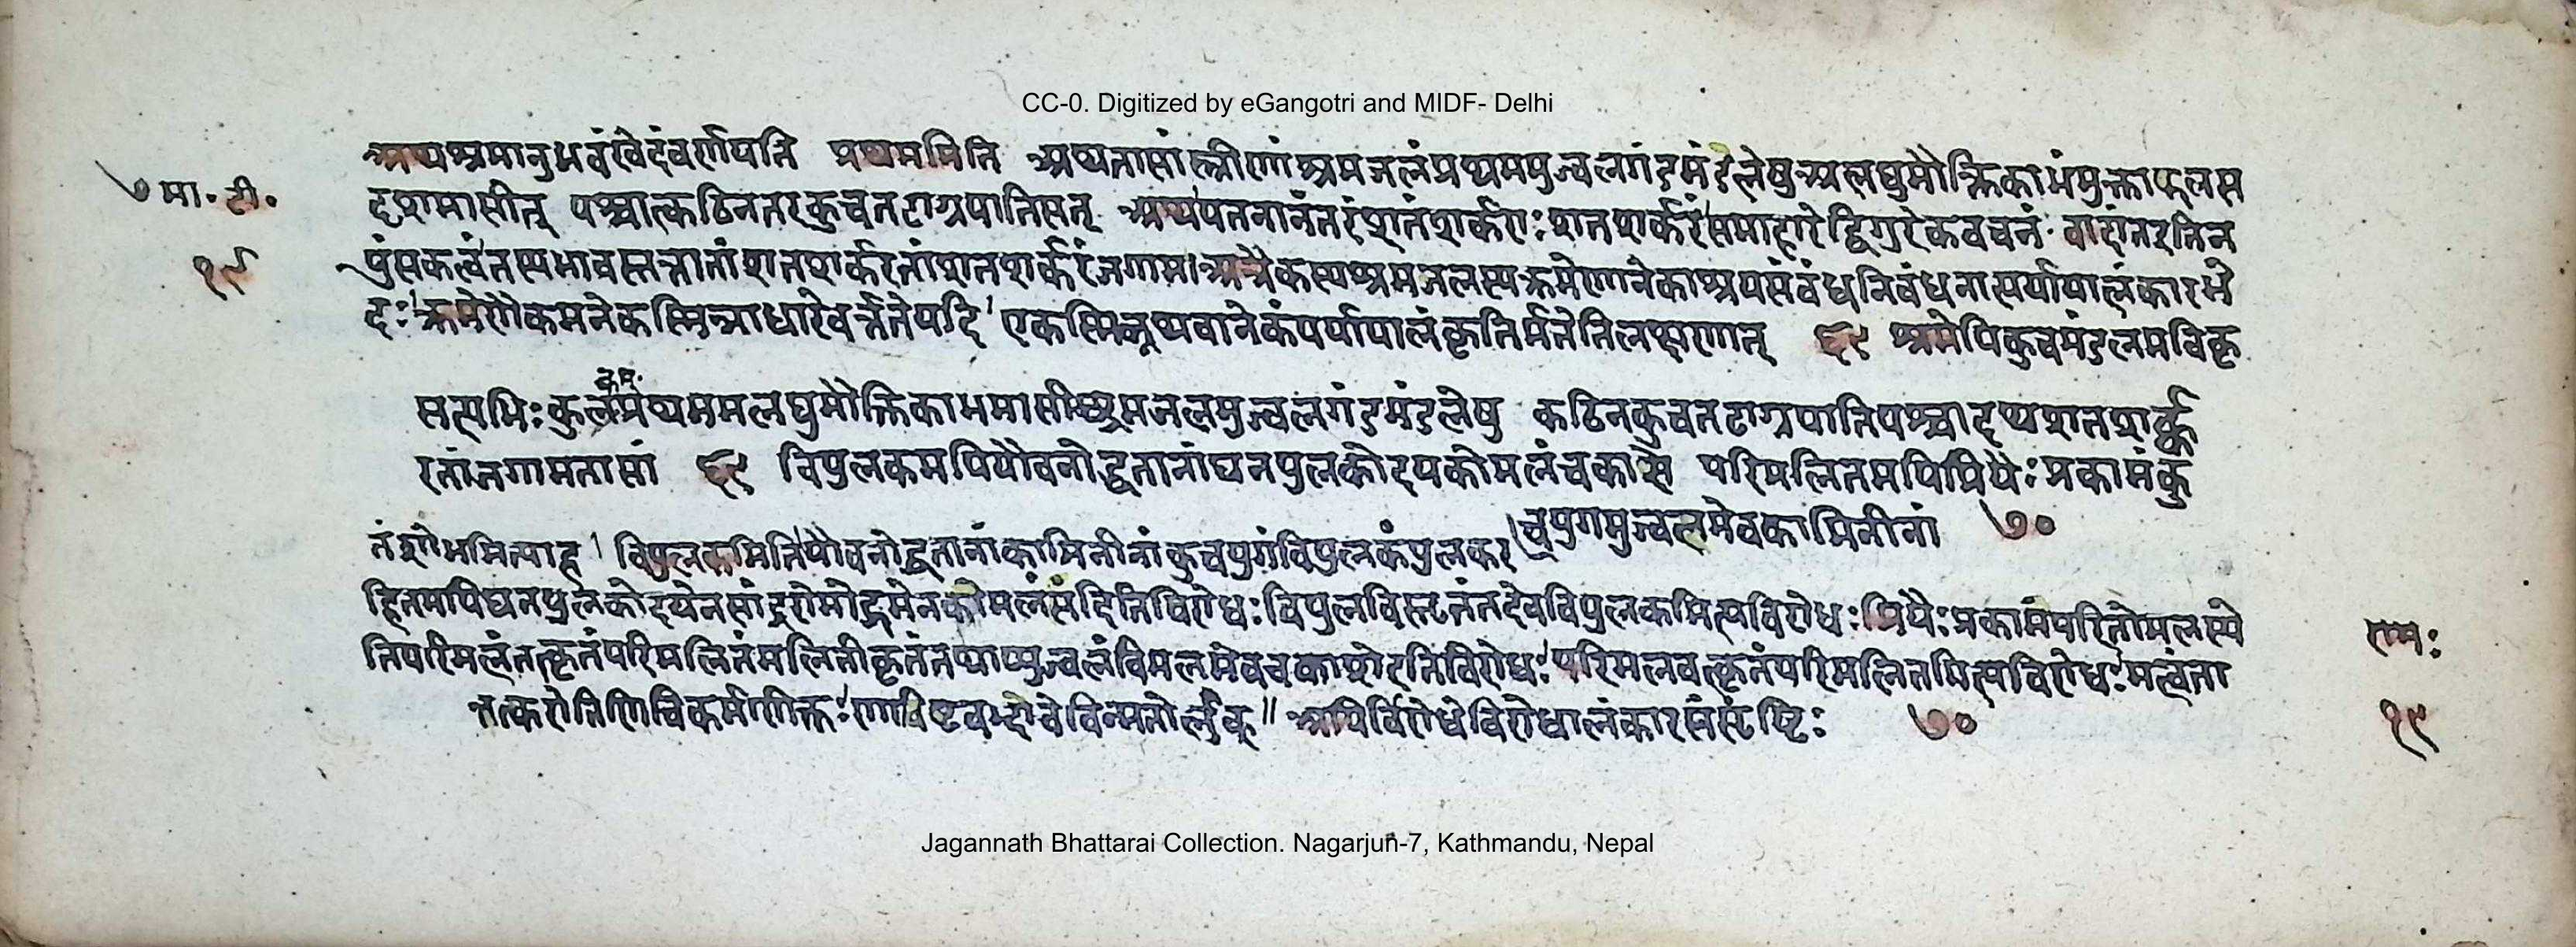 CC-0. Digitized by eGangotri and MIDF- Delhi
अथ श्रमानुभवं खेदं वर्णयति प्रथममिति अथ तासां स्त्रीणां श्रमजलं प्रथममुज्वलगंडमंडलेषु अलघुमौक्तिकाभं मुक्ताफलस
७ मा. टी.
दृशमासीत् पश्चात्कठिनतरकुचतटाग्रपातिसत् अथ पतनानंतरं शतं शर्कराः शतशर्करं समाहारे द्विगुरेकवचनं वाटांतइतिन
१९
पुंसकत्वं तस्यभावस्तत्तातां शतशर्करतां शतशर्करं जगाम। अत्रैकस्य श्रमजलस्य क्रमेणानेकाश्रयसंबंधनिबंधनात्पर्यायालंकारभे
दः क्रमेणैकमनेकस्मिन्नाधारे वर्त्तते यदि एकस्मिन्नथवानेकं पर्यायालंकृतिर्मतेतिलक्षणात् ६९ श्रमेपिकुचमंडलमविकृ
सत्यभिः कुलप्रथममलघुमौक्तिकाभमासीच्छ्रमजलमुज्वलगंडमंडलेषु कठिनकुचतटाग्रपातिपश्चादथशतशर्क्क
रतां जगाम तासां ६९ विपुलकमपियौवनोद्धतानां घनपुलकोदयकोमलं चकासे परिमलितमपिप्रियैः प्रकामं कु
चयुगमुज्वलमेवकामिनीनां ७०
तंशोभमित्याह । विपुलकमिति यौवनोद्धतानां कामिनीनां कुचयुगं विपुलकं पुलकर
हितमपिघनपुलकोदयेनसांद्ररोमोद्गमेनकोमलंसंदितिविरोधः विपुलविस्टतंतदेवविपुलकमित्यविरोधः प्रियैः प्रकामं परितोमलस्ये
रामः
तिपरिमलंतत्कृतंपरिमलितंमलिनीकृतंतथाप्युज्वलंविमलमेवचकाशेइतिविरोधः परिमलवत्कृतंपरिमलितमित्यविरोधः मत्वंता
त्तत्करोतिणिचिकर्मणिक्तः णाविष्टवद्भावेविन्मतोर्लुक् ॥ अपिर्विरोधेविरोधालंकारसंसृष्टिः ७०
१९
Jagannath Bhattarai Collection. Nagarjun-7, Kathmandu, Nepal